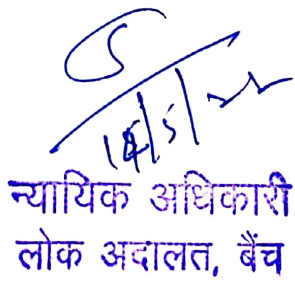 न्यायिक अधिकारी
लोक अदालत, बैंच